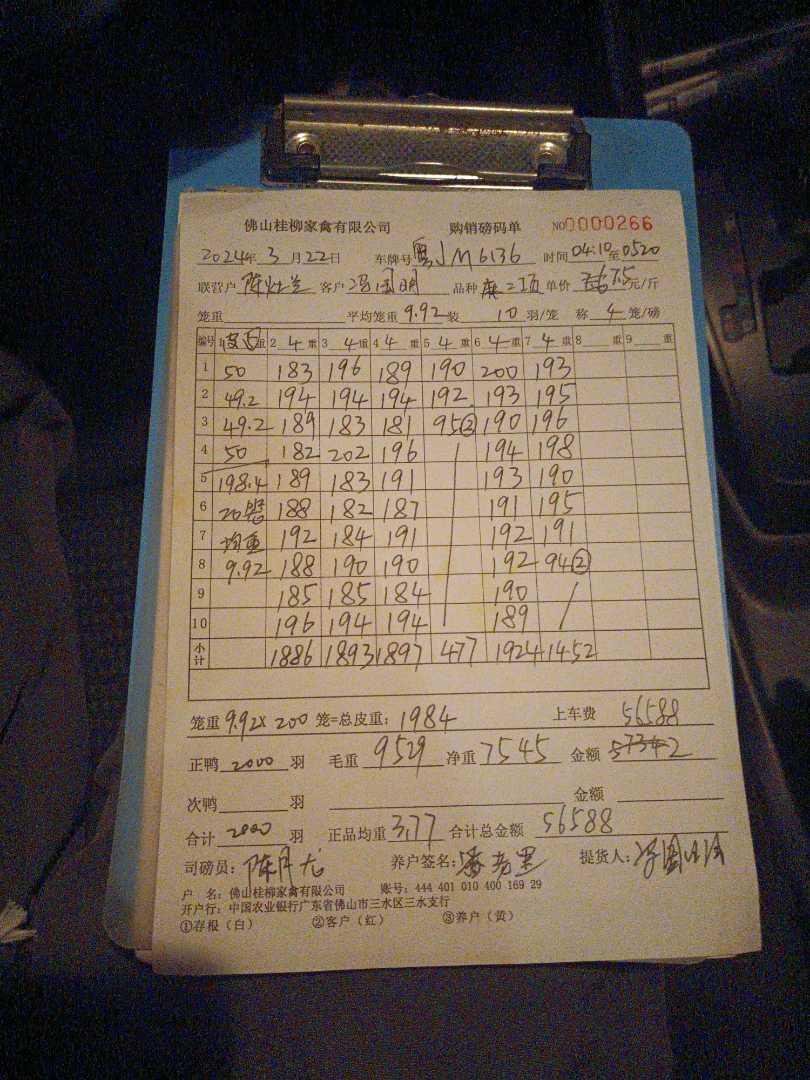 佛山桂柳家禽有限公司 购销磅码单 NO0000266
2024年 3月22日 车牌号 粤JM6136 时间 04:10至0520
联营户 陈灶兰 客户 冯国明 品种 单价 7.5元/斤
笼重 平均笼重 9.92 装 10 羽/笼 称 4 笼/磅
编号 1皮重 2 4重 3 4重 4 4重 5 4重 6 4重 7 4重 8 重 9 重
1 50 183 196 189 190 200 193
2 49.2 194 194 194 192 193 195
3 49.2 189 183 181 95② 190 196
4 50 182 202 196 194 198
5 198.4 189 183 191 193 190
6 20笼 188 182 187 191 195
7 均重 192 184 191 192 191
8 9.92 188 190 190 192 94②
9 185 185 184 190
10 196 194 194 189
小计 1886 1893 1897 477 1924 1452
笼重 9.92x 200 笼=总皮重: 1984 上车费 56588
正鸭 2000 羽 毛重 9529 净重 7545 金额
次鸭 羽 金额
合计 2000 羽 正品均重 3.77 合计总金额 56588
司磅员: 养户签名: 提货人:
户 名: 佛山桂柳家禽有限公司 账号: 444 401 010 400 169 29
开户行: 中国农业银行广东省佛山市三水区三水支行
①存根（白） ②客户（红） ③养户（黄）